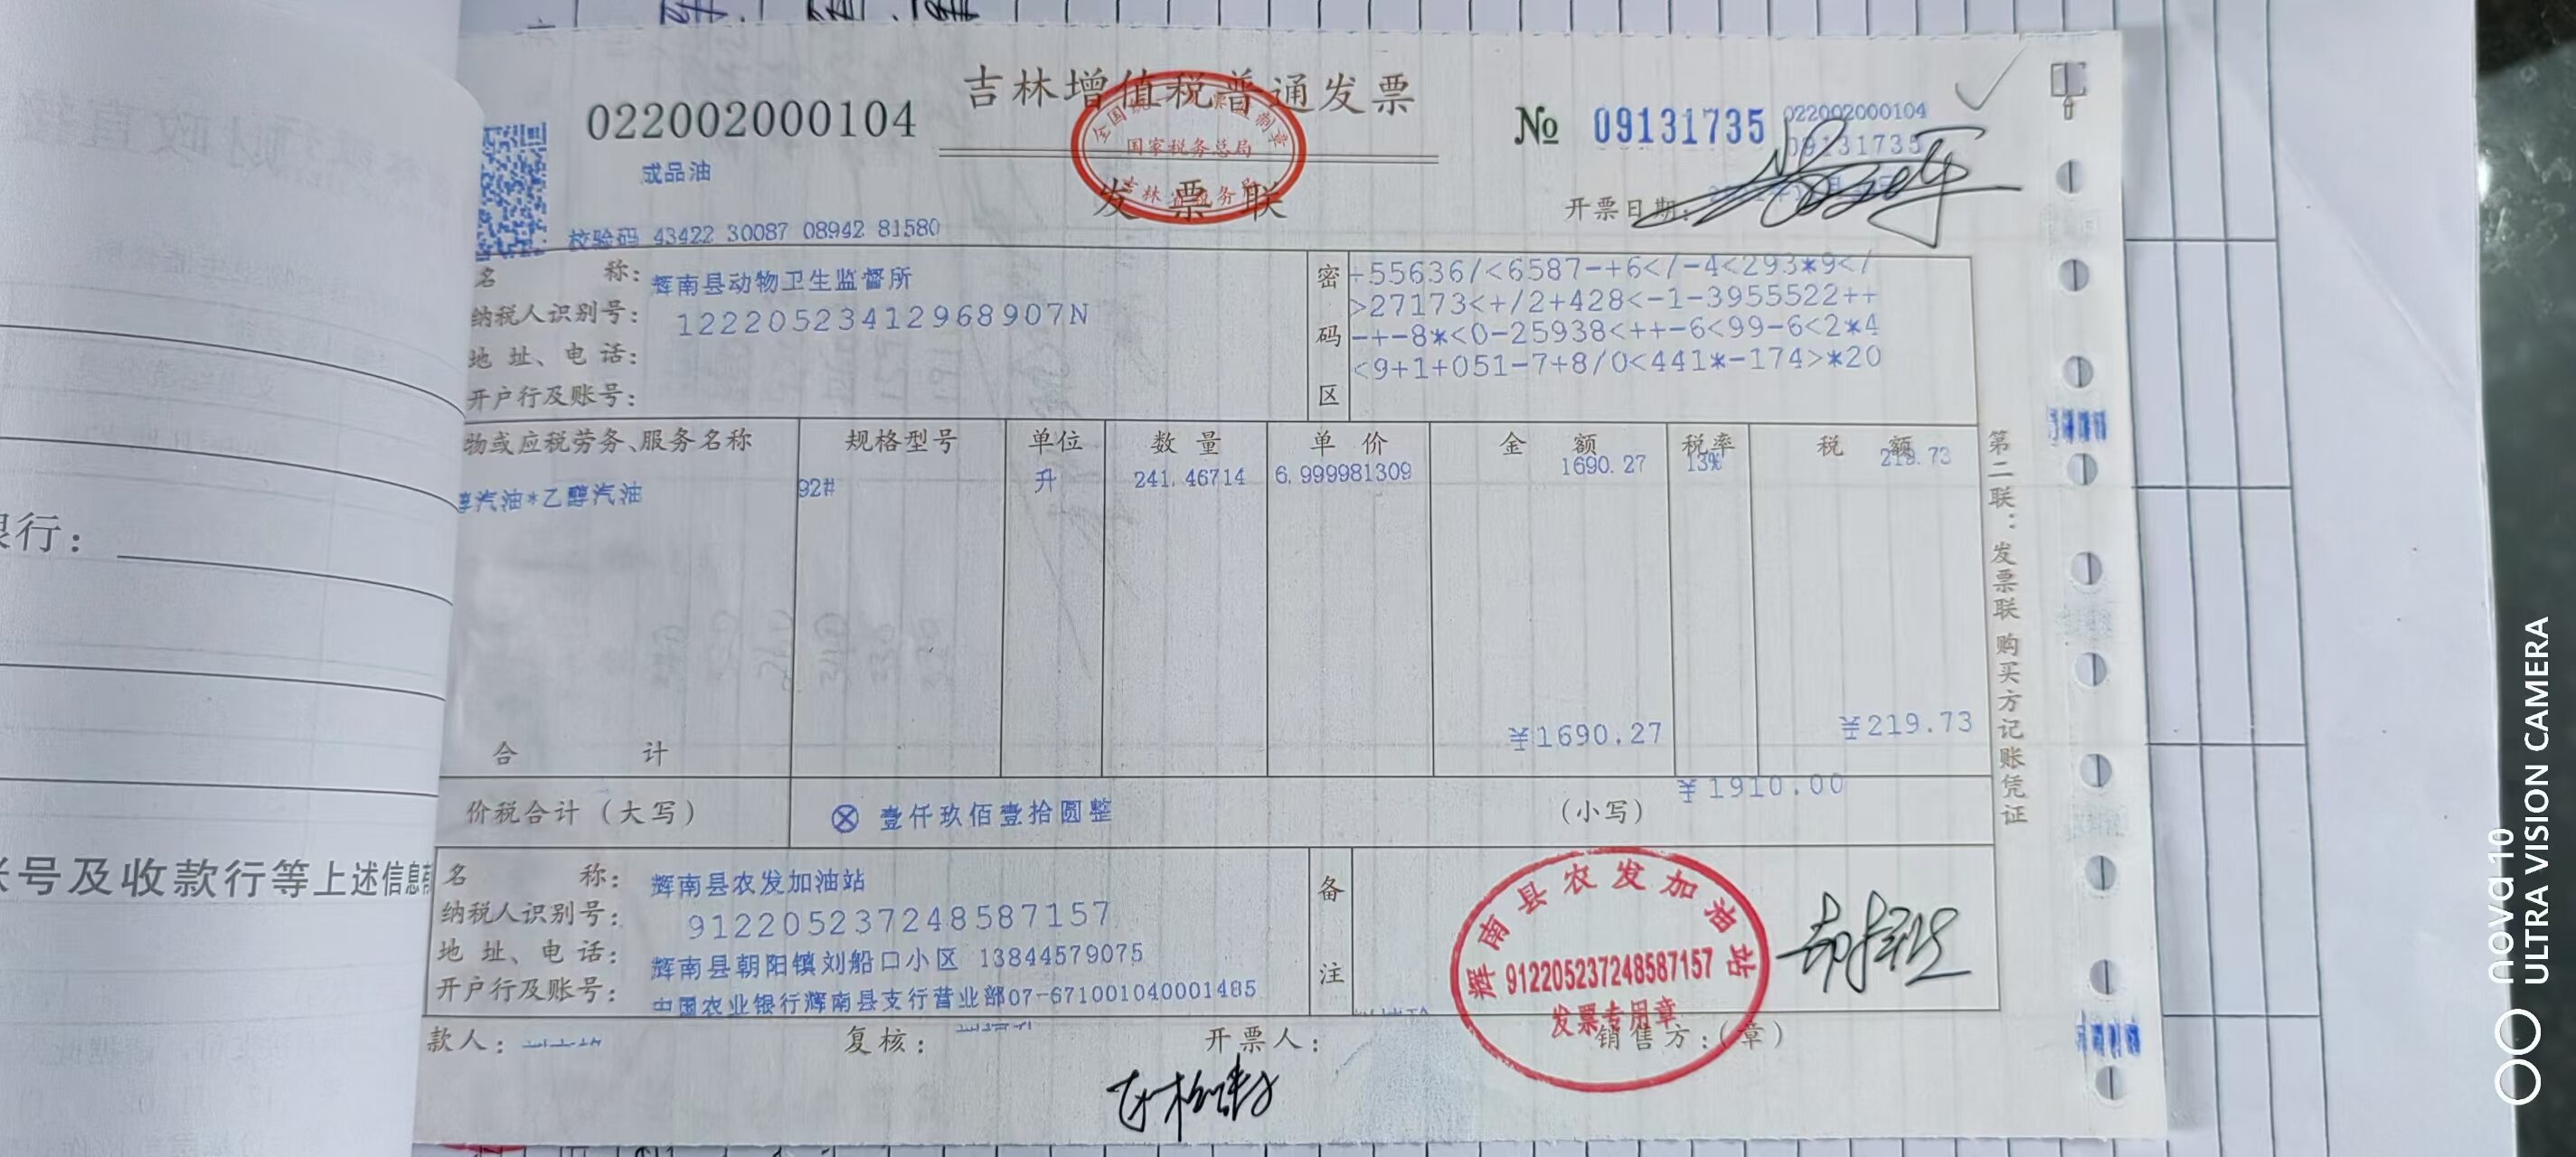 吉林增值税普通发票
022002000104
№ 09131735
022002000104
09131735
成品油
国家税务总局
发票联
开票日期:
校验码 43422 30087 08942 81580
名称: 辉南县动物卫生监督所
纳税人识别号: 12220523412968907N
地址、电话:
开户行及账号:
密码区
+55636/<6587-+6</-4<293*9</
>27173<+/2+428<-1-3955522++
-+-8*<0-25938<++-6<99-6<2*4
<9+1+051-7+8/0<441*-174>*20
物或应税劳务、服务名称 规格型号 单位 数量 单价 金额 税率 税额
醇汽油*乙醇汽油 92# 升 241.46714 6.999981309 1690.27 13% 219.73
合计 ¥1690.27 ¥219.73
价税合计(大写) ⊗ 壹仟玖佰壹拾圆整 (小写) ¥1910.00
名称: 辉南县农发加油站
纳税人识别号: 912205237248587157
地址、电话: 辉南县朝阳镇刘船口小区 13844579075
开户行及账号: 中国农业银行辉南县支行营业部07-671001040001485
备注
辉南县农发加油站
912205237248587157
发票专用章
款人: 复核: 开票人: 销售方:(章)
第二联:发票联 购买方记账凭证
行:
号及收款行等上述信息
nova 10
ULTRA VISION CAMERA